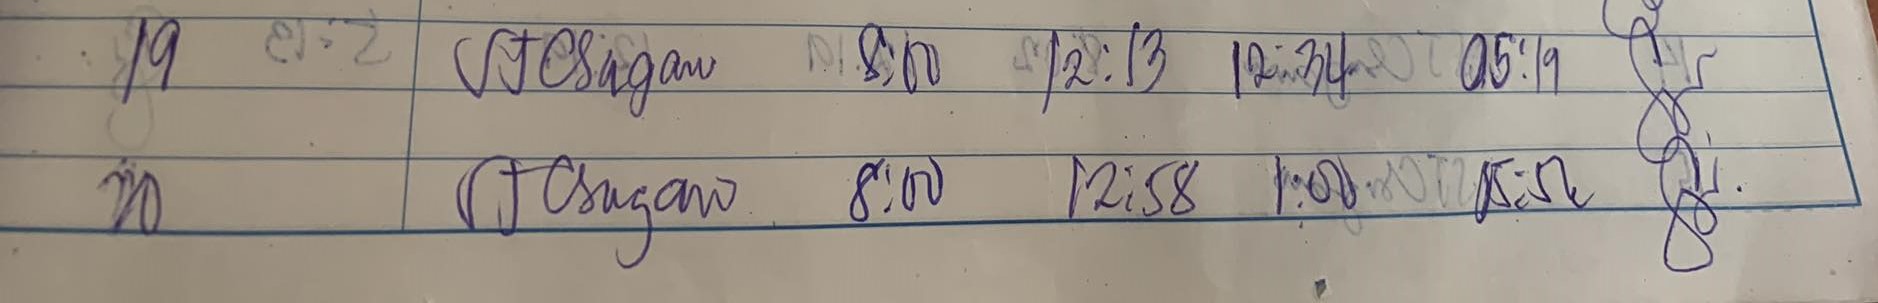 19 VJ Csugaw 8:00 12:13 12:34 05:19
20 VJ Csugaw 8:00 12:58 1:00 05:52